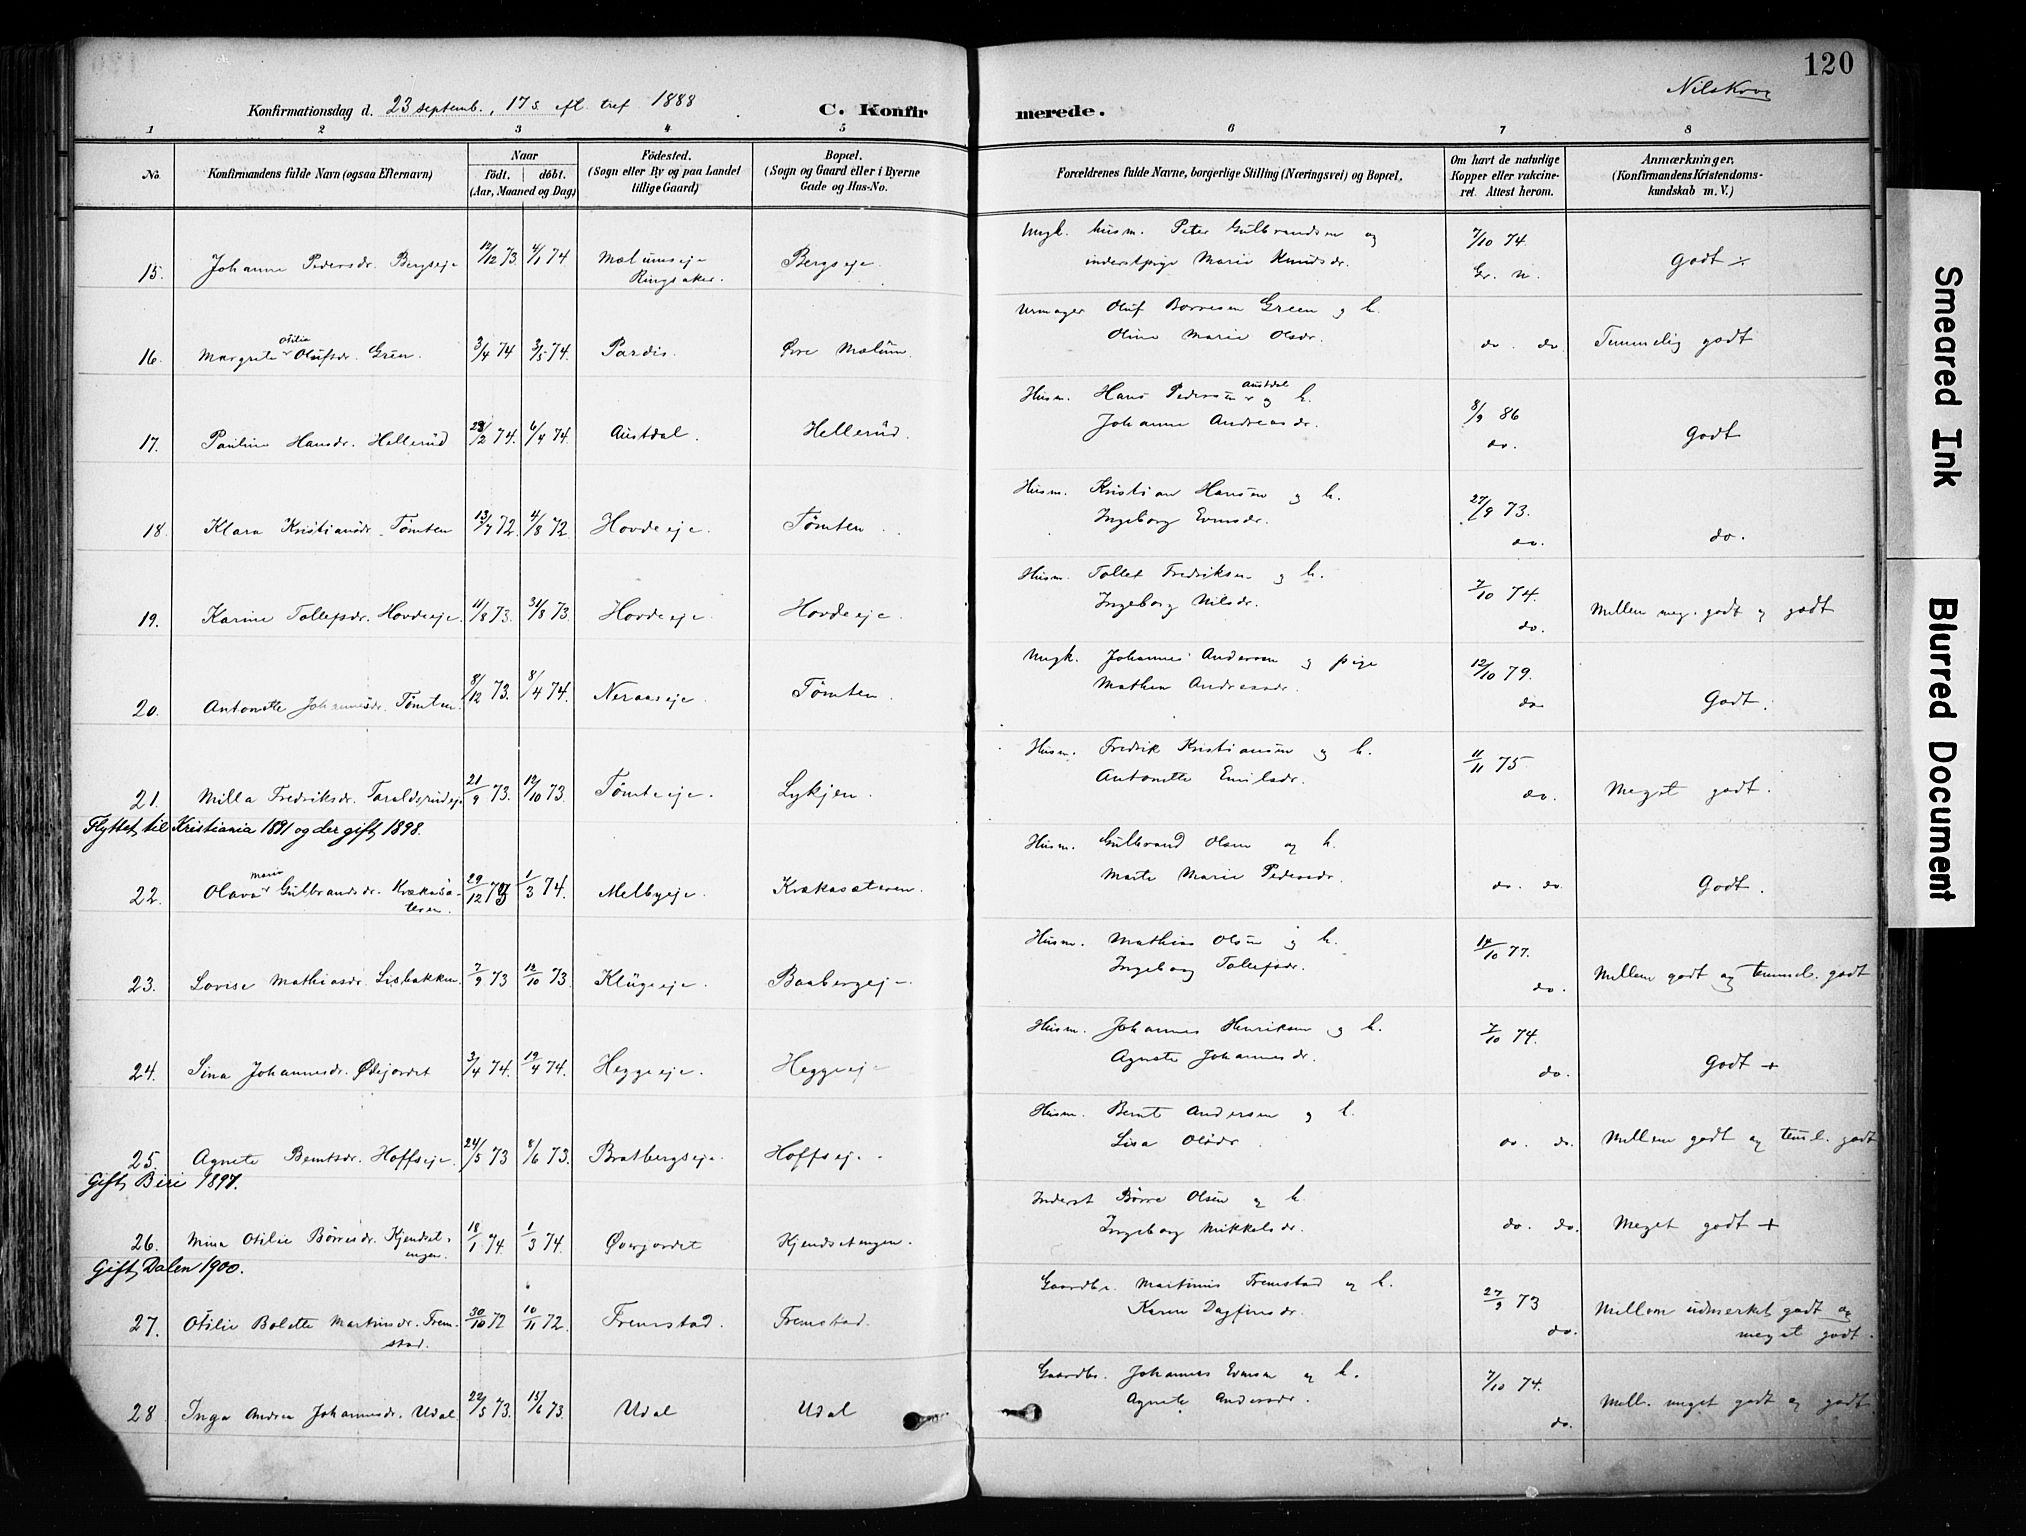 120
Nilskova
Konfirmationsdag d. 23 septemb., 17 s. eft. tref 1888
C. Konfirmerede.
1 2 3 4 5 6 7 8
No.
Konfirmandens fulde Navn (ogsaa Efternavn)
Naar
født. døbt.
(Aar, Maaned og Dag)
Fødested.
(Sogn eller By og paa Landet
tillige Gaard)
Bopæl.
(Sogn og Gaard eller i Byerne
Gade og Hus-No.
Forældrenes fulde Navne, borgerlige Stilling (Næringsvei) og Bopæl.
Om havt de naturlige
Kopper eller vakcine-
ret. Attest herom.
Anmærkninger.
(Konfirmandens Kristendoms-
kundskab m. V.)
15. Johanne Pedersdr. Bergseje 12/12 73. 4/1 74 Mælumseje Ringsaker. Bergseje. Ungk. husm. Peter Gulbrandsen og
inderstpige Marie Knudsdr. 7/10 74. Gr. N. Godt ÷
16. Margrete Otilia Olufsdr. Green. 3/4 74 3/5 74. Pardis. Øvre Mælum. Urmager Oluf Borresen Green og h.
Oline Marie Olsdr. do. do Temmelig godt
17. Pauline Hansdr. Hellerud 28/2 74. 6/4 74. Austdal. Hellerud. Husm. Hans Pedersen Austdal og h.
Johanne Andreasdr. 8/9 86 do. Godt
18. Klara Kristiansdr. Tømten 13/7 72. 4/8 72. Hovdeeje. Tømten. Husm. Kristian Hansen og h.
Ingeborg Evensdr. 27/9 73. do. do.
19. Karine Tollefsdr. Hovdeeje. 11/8 73. 31/8 73. Hovdeeje. Hovdeeje. Husm. Tollef Fredriksen og h.
Ingeborg Nilsdr. 7/10 74. do. Mellem meg. godt og godt
20. Antonette Johannesdr. Tømten. 8/12 73. 8/4 74. Neraaseje. Tømten. Ungk. Johannes Andersen og pige
Mathea Andreasdr. 12/10 79. do Godt.
21. Milla Fredriksdr. Taraldsrudeje 21/9 73. 12/10 73. Tømteeje. Lykjen. Husm. Fredrik Kristiansen og h.
Antonette Emilsdr. 11/11 75. do. Meget godt.
Flyttet til Kristiania 1891 og der gift 1898.
22. Olava Marie Gulbrandsdr. Krækasæteren. 29/12 73 1/3 74. Melbyeje. Krækasæteren. Husm. Gulbrand Olsen og h.
Marte Marie Pedersdr. do. do. Godt.
23. Lovise Mathiasdr. Lisbakken. 7/9 73 12/10 73. Klügeeje. Baabergeje. Husm. Mathias Olsen og h.
Ingeborg Tollefsdr. 14/10 77. do. Mellem godt og temmel. godt
24. Sina Johannesdr. Ødejordet 3/4 74. 19/4 74. Heggeeje. Heggeeje Husm. Johannes Henriksen og h.
Agnete Johannesdr. 7/10 74. do. Godt +
25. Agnete Berntsdr. Hoffseje. 24/5 73 8/6 73. Bratbergseje. Hoffseje. Husm. Bernt Andersen og h.
Lisa Olsdr. do. do. Mellem godt og teml. godt
Gift Biri 1897.
26. Mina Otilie Børresdr. Kjendset-
engen. 18/1 74 1/3 74. Øverjordet Kjendsetengen. Inderst Børre Olsen og h.
Ingeborg Mikkelsdr. do. do. Meget godt +
Gift Dalen 1900.
27. Otilie Bolette Martinsdr. Frem-
stad. 30/10 72 10/11 72. Fremstad. Fremstad. Gaardbr. Martinus Fremstad og h.
Karen Dagfinsdr. 27/9 73 do. Mellem udmerket godt og
meget godt.
28 Inga Andrea Johannesdr. Udal. 22/5 73. 15/6 73. Udal Udal Gaardbr. Johannes Evensen og h.
Agnete Andersdr. 7/10 74. do. Mell. meget godt og godt.
Smeared Ink
Blurred Document